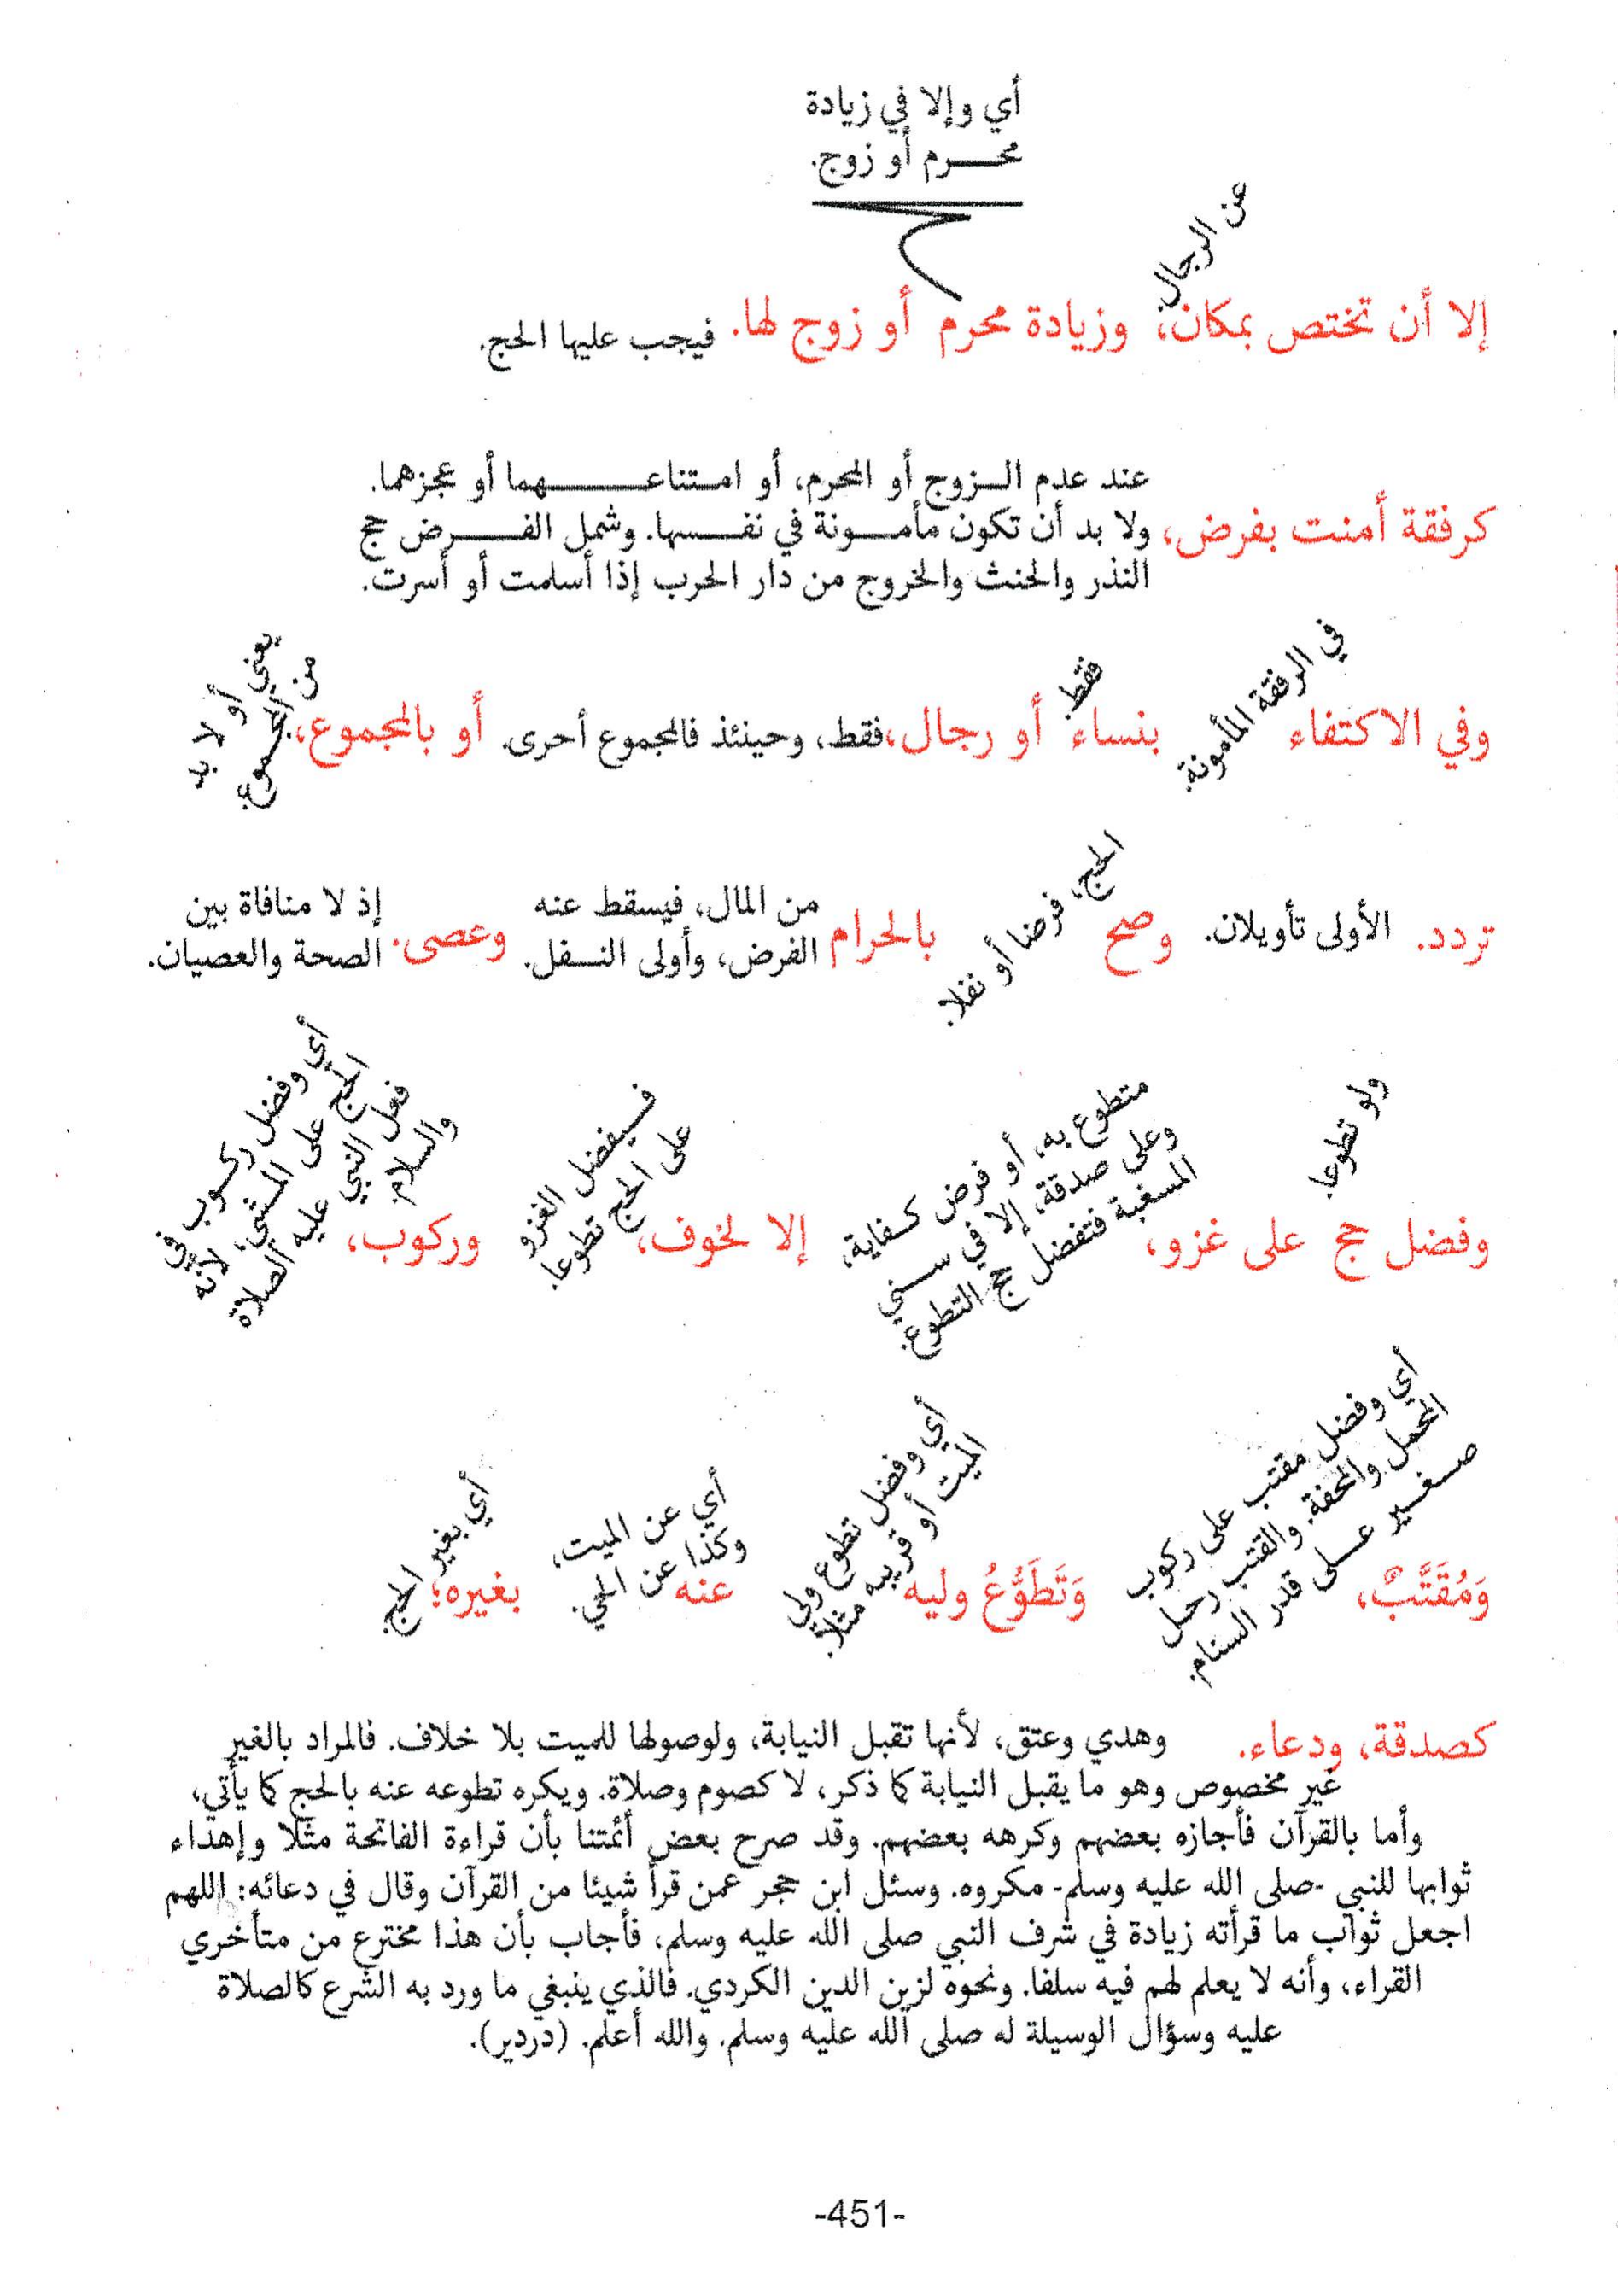 أي وإلا في زيادة
محرم أو زوج.
عن الرجال.
إلا أن تختص بمكان، وزيادة محرم أو زوج لها. فيجب عليها الحج.
عند عدم الزوج أو المحرم، أو امتناعهما أو عجزهما.
كرفقة أمنت بفرض، ولا بد أن تكون مأمونة في نفسها. وشمل الفرض حج
النذر والحنث والخروج من دار الحرب إذا أسلمت أو أسرت.
وفي الاكتفاء
في الرفقة المأمونة.
بنساء
فقط.
أو رجال، فقط، وحينئذ فالمجموع أحرى. أو بالمجموع،
يعني أو لا بد
من المجموع.
تردد. الأولى تأويلان. وصح
الحج، فرضا أو نفلا.
بالحرام
من المال، فيسقط عنه
الفرض، وأولى النفل.
وعصى.
إذ لا منافاة بين
الصحة والعصيان.
وفضل حج
ولو تطوعا.
على غزو،
متطوع به، أو فرض كفاية،
وعلى صدقة، إلا في سني
المسغبة فتفضل حج التطوع.
إلا لخوف،
فيفضل الغزو
على الحج تطوعا.
وركوب،
أي وفضل ركوب في
الحج على المشي، لأنه
فعل النبي عليه الصلاة
والسلام.
وَمُقَتَّبٌ،
أي وفضل مقتب على ركوب
المحمل والمحفة. والقتب رحل
صغير على قدر السنام.
وَتَطَوُّعُ وليه
أي وفضل تطوع ولي
الميت أو قريبه مثلا.
عنه
أي عن الميت،
وكذا عن الحي.
بغيره؛
أي بغير الحج.
كصدقة، ودعاء. وهدي وعتق، لأنها تقبل النيابة، ولوصولها للميت بلا خلاف. فالمراد بالغير
غير مخصوص وهو ما يقبل النيابة كما ذكر، لا كصوم وصلاة. ويكره تطوعه عنه بالحج كما يأتي،
وأما بالقرآن فأجازه بعضهم وكرهه بعضهم. وقد صرح بعض أئمتنا بأن قراءة الفاتحة مثلا وإهداء
ثوابها للنبي -صلى الله عليه وسلم- مكروه. وسئل ابن حجر عمن قرأ شيئا من القرآن وقال في دعائه: اللهم
اجعل ثواب ما قرأته زيادة في شرف النبي صلى الله عليه وسلم، فأجاب بأن هذا مخترع من متأخري
القراء، وأنه لا يعلم لهم فيه سلفا. ونحوه لزين الدين الكردي. فالذي ينبغي ما ورد به الشرع كالصلاة
عليه وسؤال الوسيلة له صلى الله عليه وسلم. والله أعلم. (دردير).
-451-